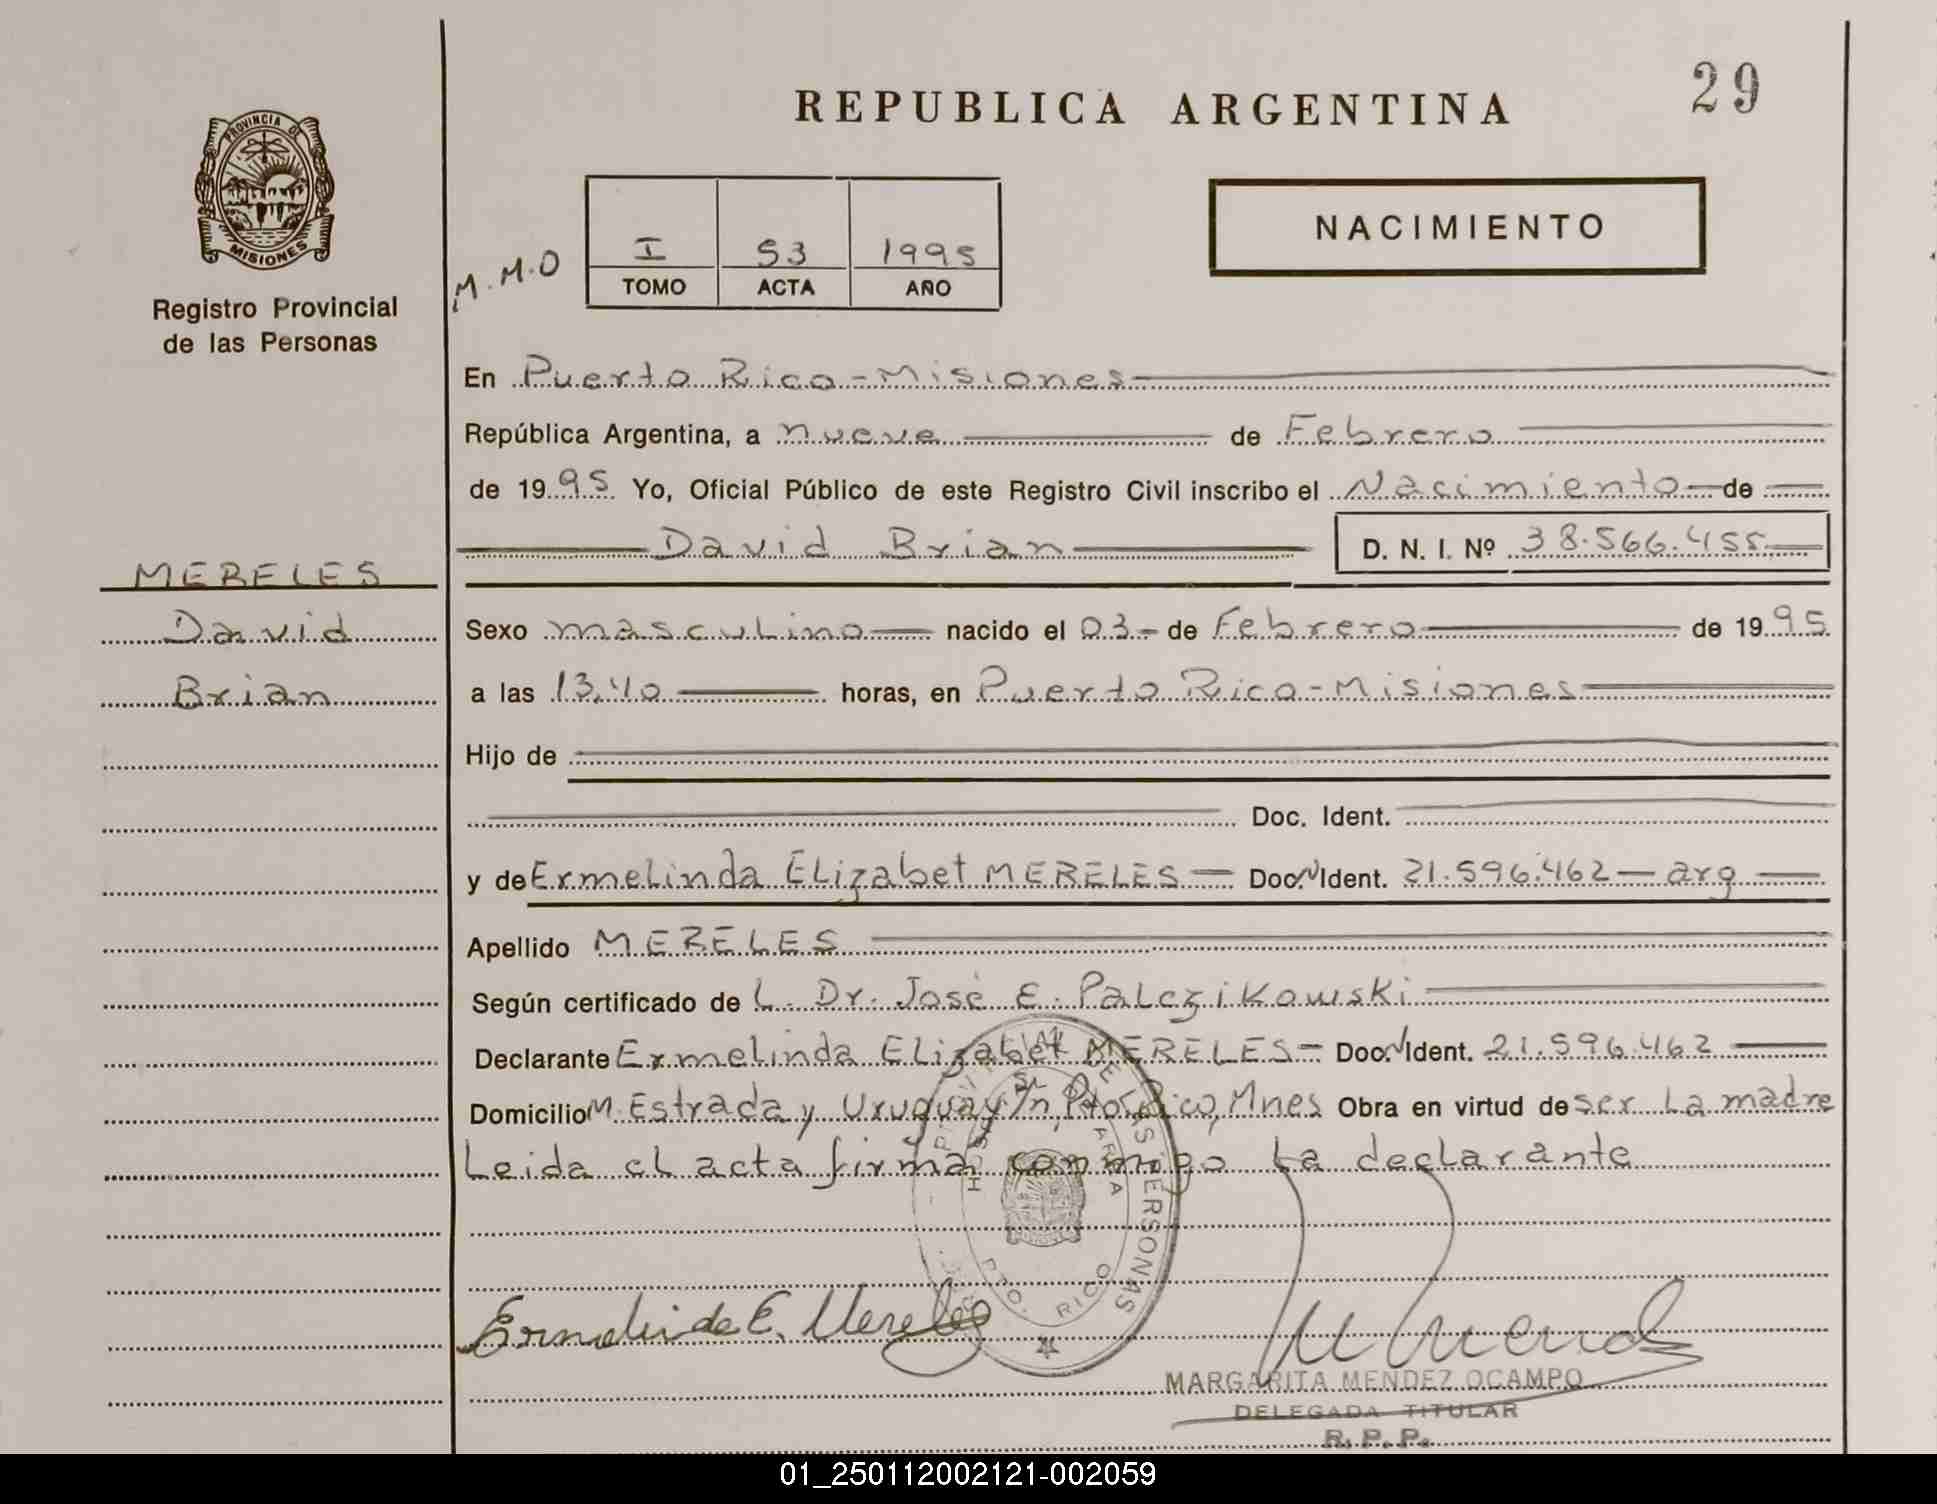 29
REPUBLICA ARGENTINA
PROVINCIA DE
MISIONES
Registro Provincial
de las Personas
NACIMIENTO
M.M.O
I 53 1995
TOMO ACTA AÑO
En Puerto Rico - Misiones
República Argentina, a nueve de Febrero
de 1995 Yo, Oficial Público de este Registro Civil inscribo el Nacimiento de
David Brian D. N. I. Nº 38.566.455
MERELES
David
Brian
Sexo masculino nacido el 03 - de Febrero de 1995
a las 13,40 horas, en Puerto Rico - Misiones
Hijo de
Doc. Ident.
y de Ermelinda Elizabet MERELES - Doc. Ident. 21.596.462 - arg
Apellido MERELES
Según certificado de L. Dr. José E. Palczikowski
Declarante Ermelinda Elizabet MERELES - Doc. Ident. 21.596.462
Domicilio M. Estrada y Uruguay S/n, Pto Rico, Mnes Obra en virtud de ser la madre
Leida el acta firma conmigo la declarante
DE LAS PERSONAS
PTO. RICO
Ermelinda E. Mereles
MARGARITA MENDEZ OCAMPO
DELEGADA TITULAR
R. P. P.
01_250112002121-002059